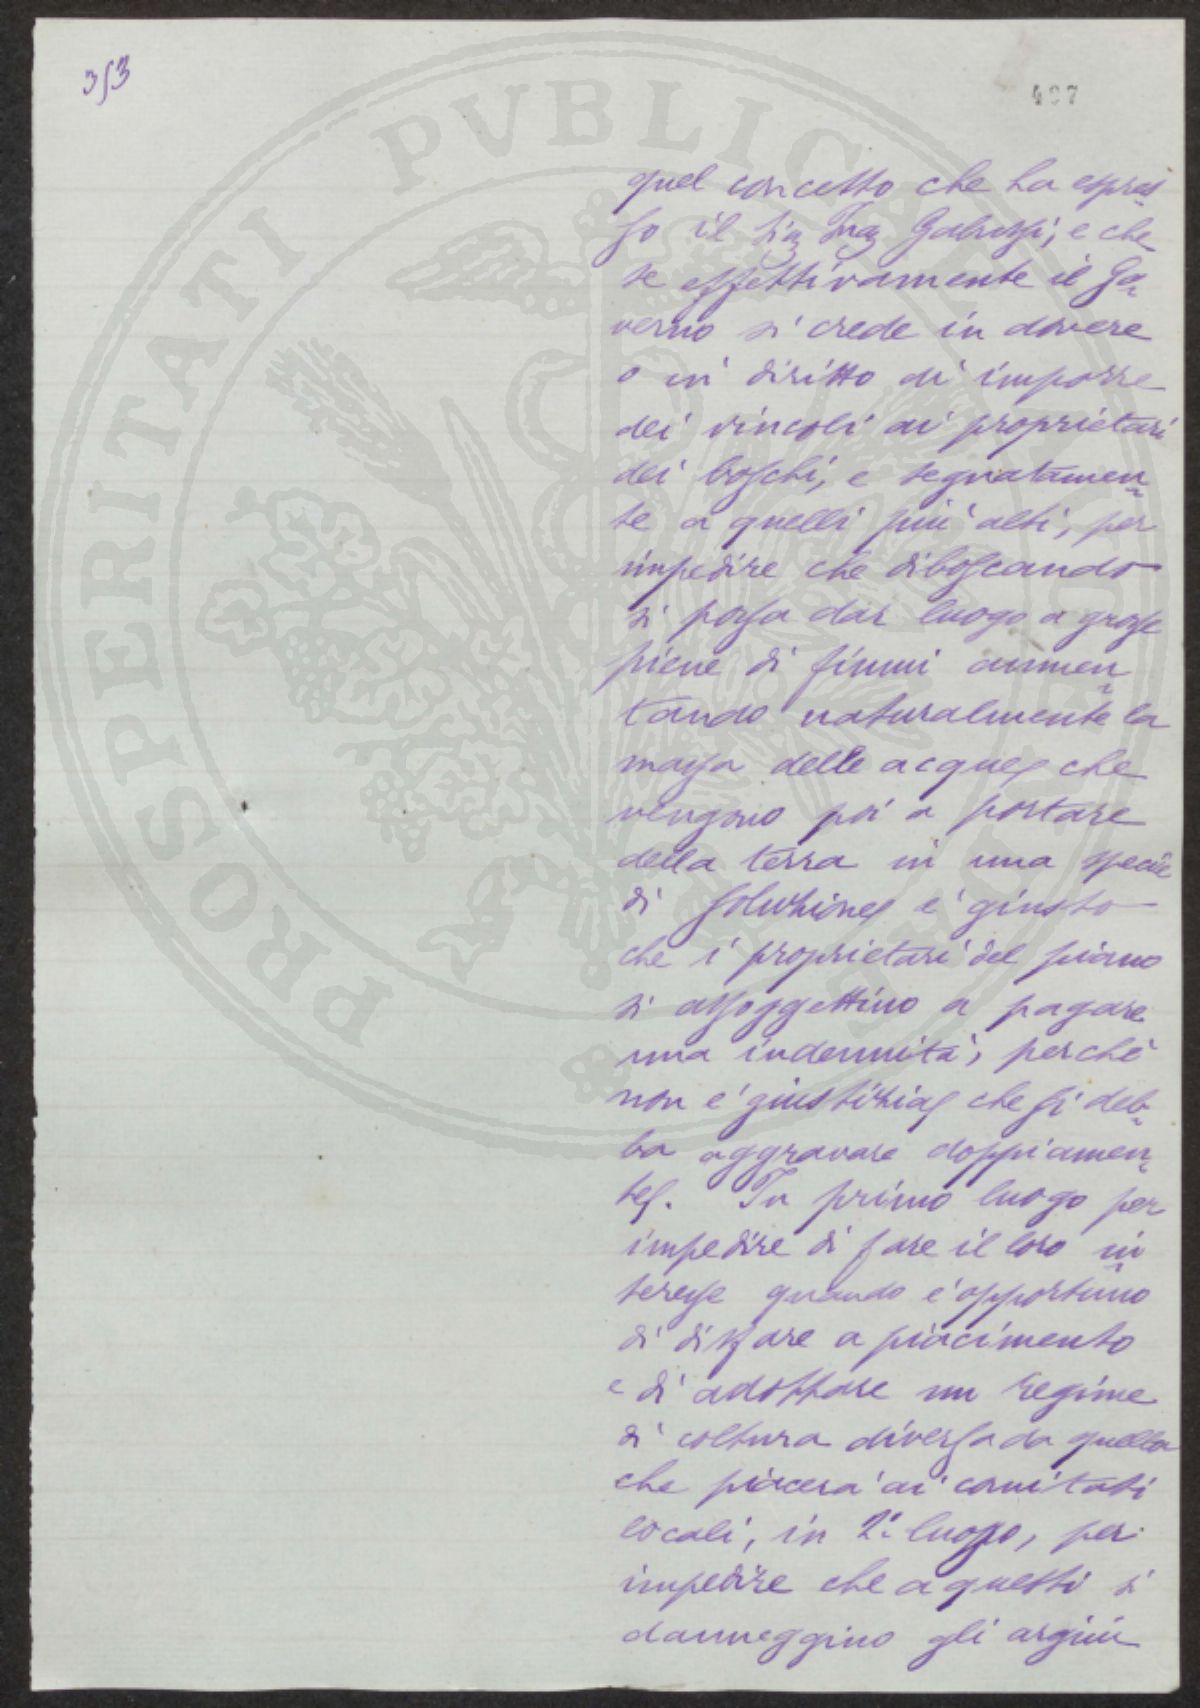 3/3
497
PROSPERITATI PVBLICAE
quel concetto che ha espres
so il Sig Ing Gabussi, e che
se effettivamente il Go-
verno si crede in dovere
o in diritto di imporre
dei vincoli ai proprietari
dei boschi, e segnatamen-
te a quelli più alti, per
impedire che diboscando
si possa dar luogo a grosse
piene di fiumi aumen-
tando naturalmente la
massa delle acque, che
vengono poi a portare
della terra in una specie
di soluzione, è giusto
che i proprietari del piano
si assoggettino a pagare
una indennità, perchè
non è giustizia, che si deb-
ba aggravare doppiamen-
te. In primo luogo per
impedire di fare il loro in
teresse quando è opportuno
di disfare a piacimento
e di adottare un regime
di coltura diversa da quella
che piacerà ai comitati
locali, in 2° luogo, per
impedire che a questi si
danneggino gli argini